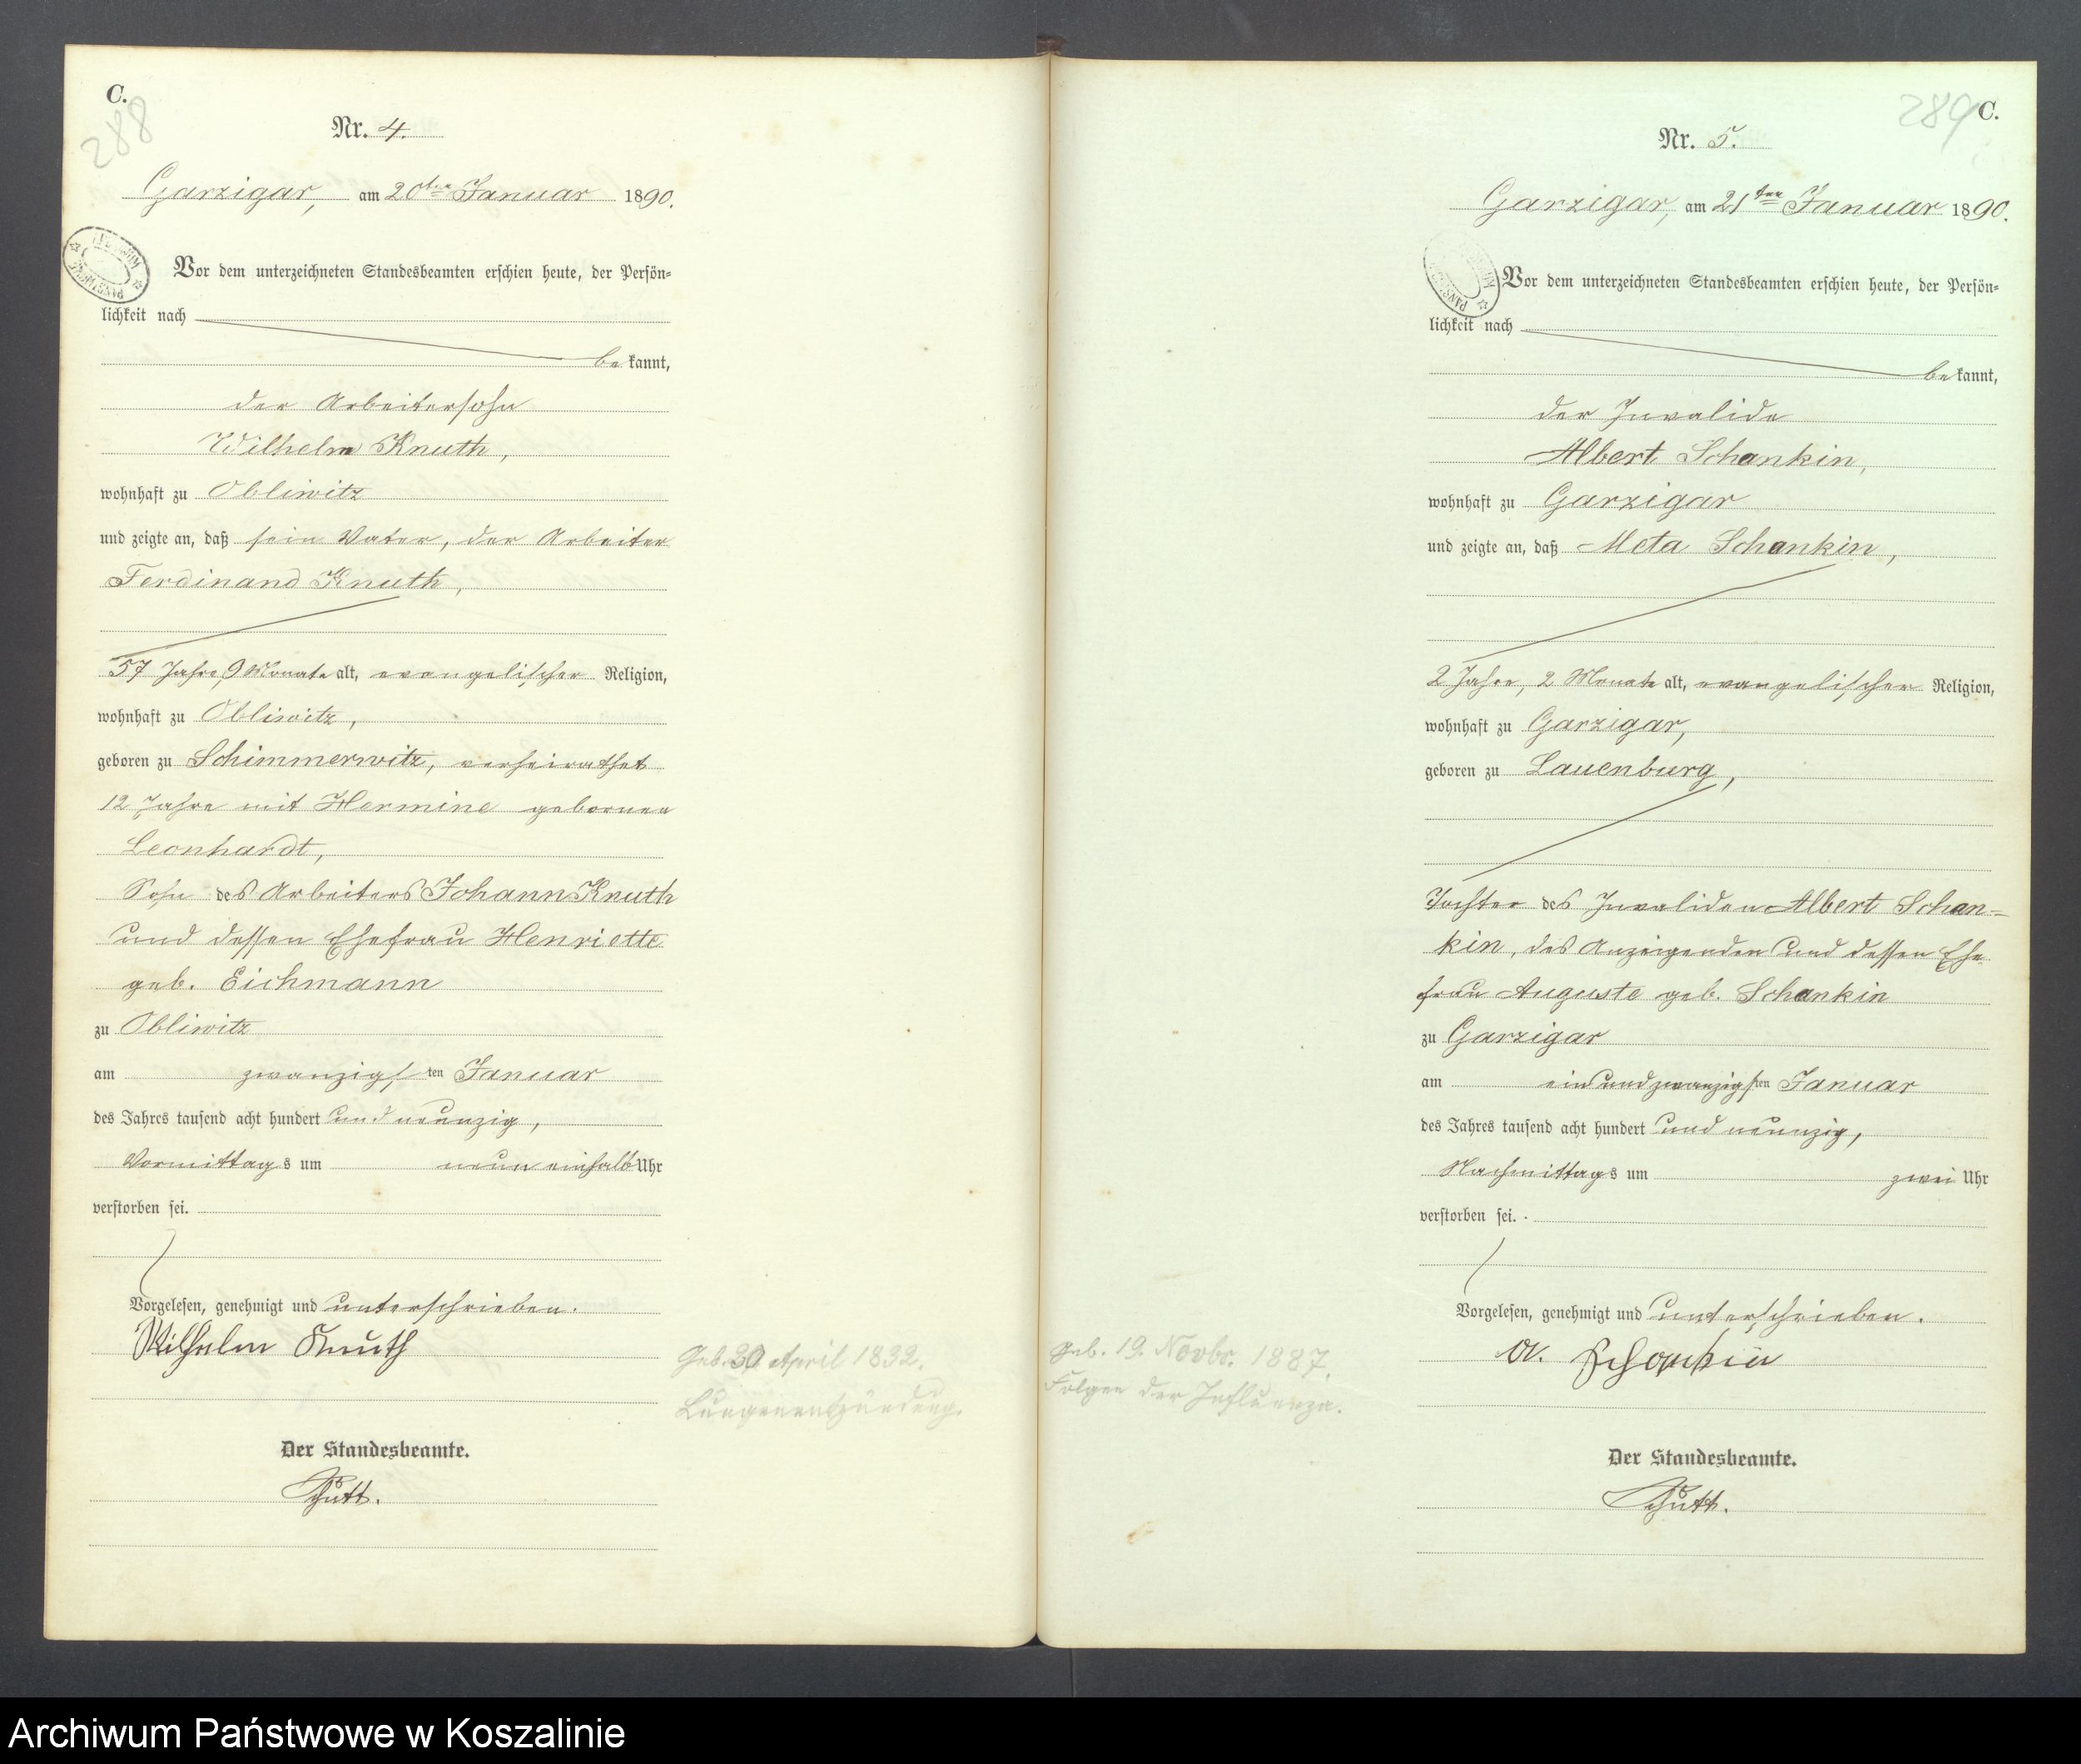 C.
288
Nr. 4.
Garzigar, am 20ten Januar 1890.
Vor dem unterzeichneten Standesbeamten erschien heute, der Persön=
lichkeit nach
bekannt,
der Arbeitersohn
Wilhelm Knuth,
wohnhaft zu Obliwitz
und zeigte an, daß sein Vater, der Arbeiter
Ferdinand Knuth,
57 Jahre, 9 Monate alt, evangelischer Religion,
wohnhaft zu Obliwitz,
geboren zu Schimmerwitz, verheirathet
12 Jahre mit Hermine geborenen
Leonhardt,
Sohn des Arbeiters Johann Knuth
und dessen Ehefrau Henriette
geb. Eichmann
zu Obliwitz
am zwanzigsten Januar
des Jahres tausend acht hundert und neunzig,
Vormittags um neun einhalb Uhr
verstorben sei.
Vorgelesen, genehmigt und unterschrieben.
Wilhelm Knuth
Geb. 20 April 1832.
Lungenentzündung.
Der Standesbeamte.
289
C.
Nr. 5.
Garzigar, am 21ten Januar 1890.
Vor dem unterzeichneten Standesbeamten erschien heute, der Persön=
lichkeit nach
bekannt,
der Invalide
Albert Schankin,
wohnhaft zu Garzigar
und zeigte an, daß Meta Schankin,
2 Jahre, 2 Monate alt, evangelischer Religion,
wohnhaft zu Garzigar,
geboren zu Lauenburg,
Tochter des Invaliden Albert Schan=
kin, des Anzeigenden und dessen Ehe
frau Auguste geb. Schankin
zu Garzigar
am einundzwanzigsten Januar
des Jahres tausend acht hundert und neunzig,
Nachmittags um zwei Uhr
verstorben sei.
Vorgelesen, genehmigt und unterschrieben.
A. Schankin
Geb. 19. Novbr. 1887.
Folgen der Influenza.
Der Standesbeamte.
Archiwum Państwowe w Koszalinie